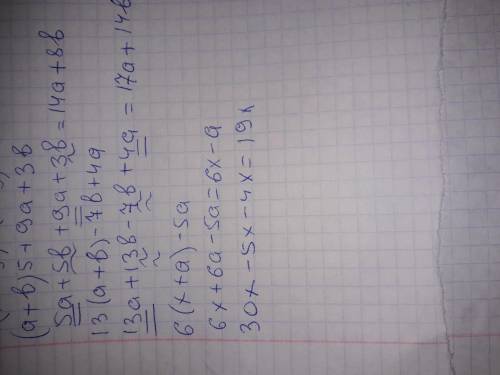 (a+b)5+9a+3b
5a+5b+9a+3b=14a+8b
13(a+b)-7b+4a
13a+13b-7b+4a=17a+14b
6(x+a)-5a
6x+6a-5a=6x-a
30x-5x-4x=19x